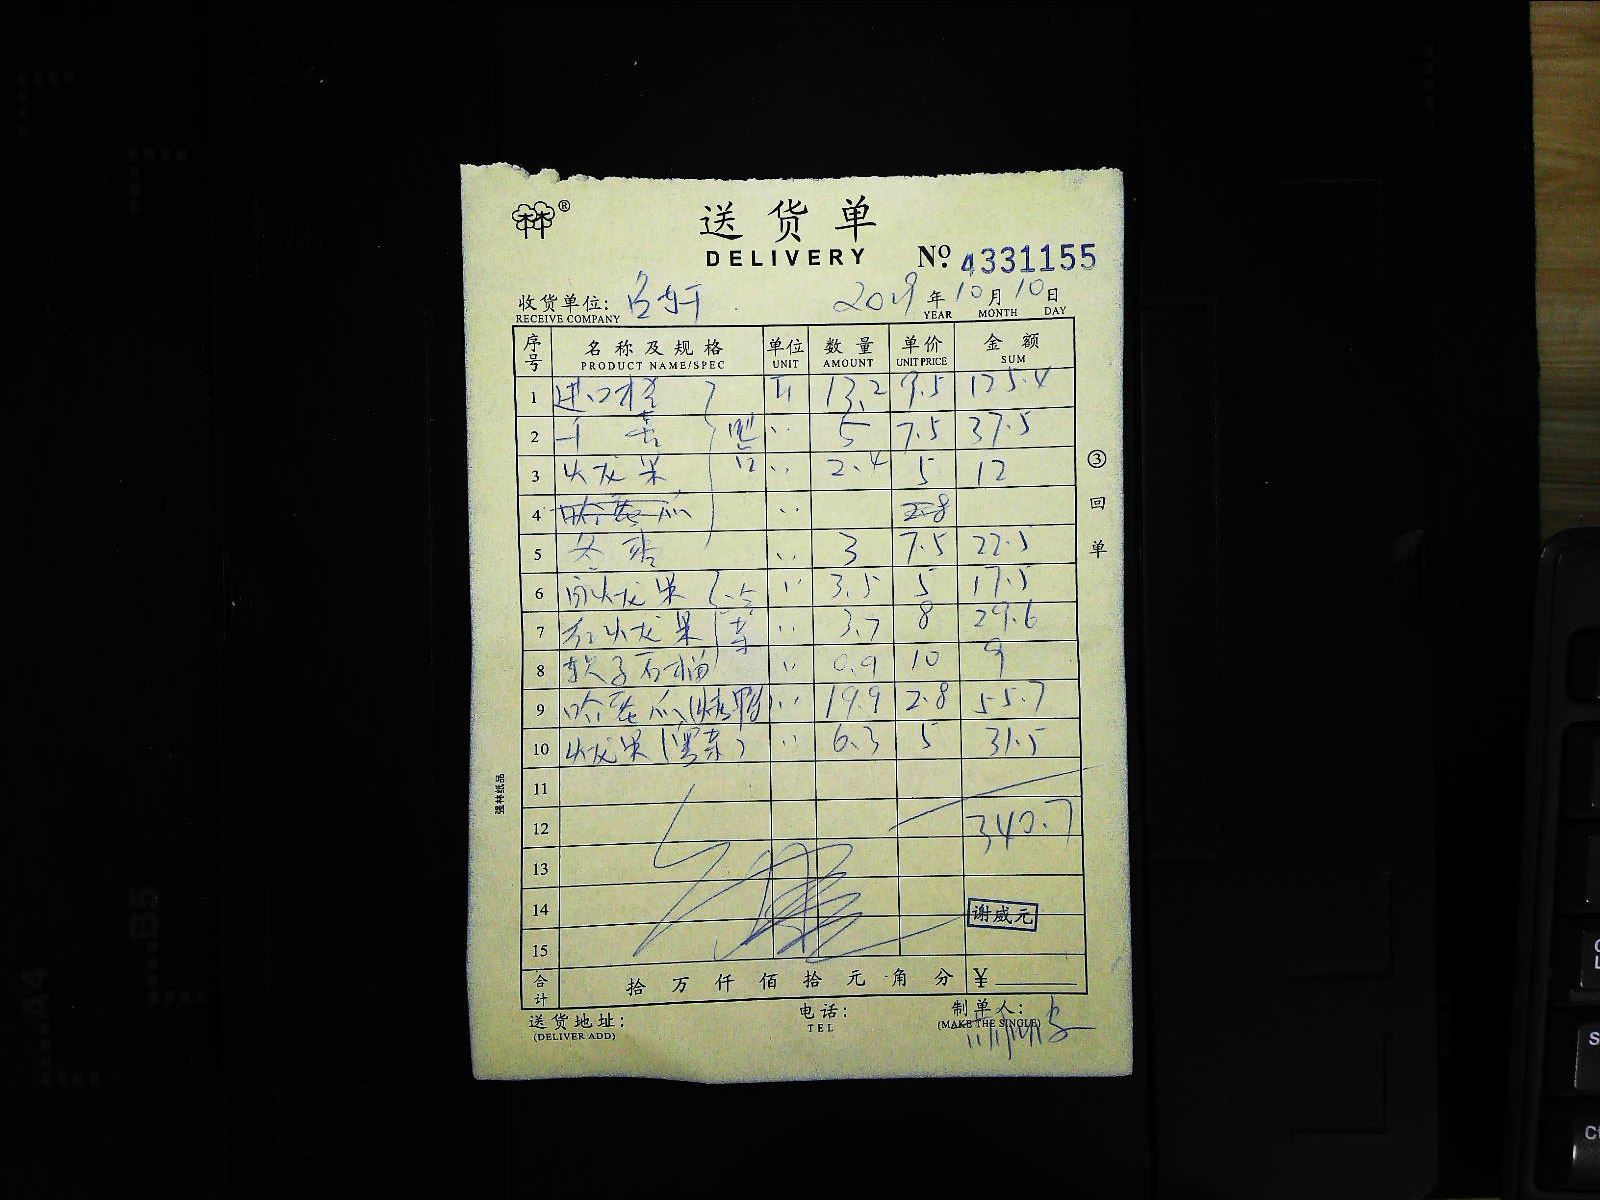 林林 ®
送货单
DELIVERY № 4331155
收货单位: 名轩 2019年10月10日
RECEIVE COMPANY YEAR MONTH DAY
序号 名称及规格 单位 数量 单价 金额
PRODUCT NAME/SPEC UNIT AMOUNT UNIT PRICE SUM
1 进口橙 斤 13.2 9.5 125.4
2 7.5 5 37.5
3 火龙果 〃 2.4 5 12
4 哈密瓜 〃 2.8
5 冬枣 〃 3 7.5 22.5
6 白火龙果 〃 3.5 5 17.5
7 红火龙果 〃 3.7 8 29.6
8 软子石榴 〃 0.9 10 9
9 哈密瓜(烧鸭) 〃 19.9 2.8 55.7
10 火龙果 〃 6.3 5 31.5
11
12 340.7
13
14 谢威元
15
合计 拾 万 仟 佰 拾 元 角 分 ¥
送货地址: 电话: 制单人:
(DELIVER ADD) TEL (MAKE THE SINGLE)
③回单
强林纸品
B5
A4